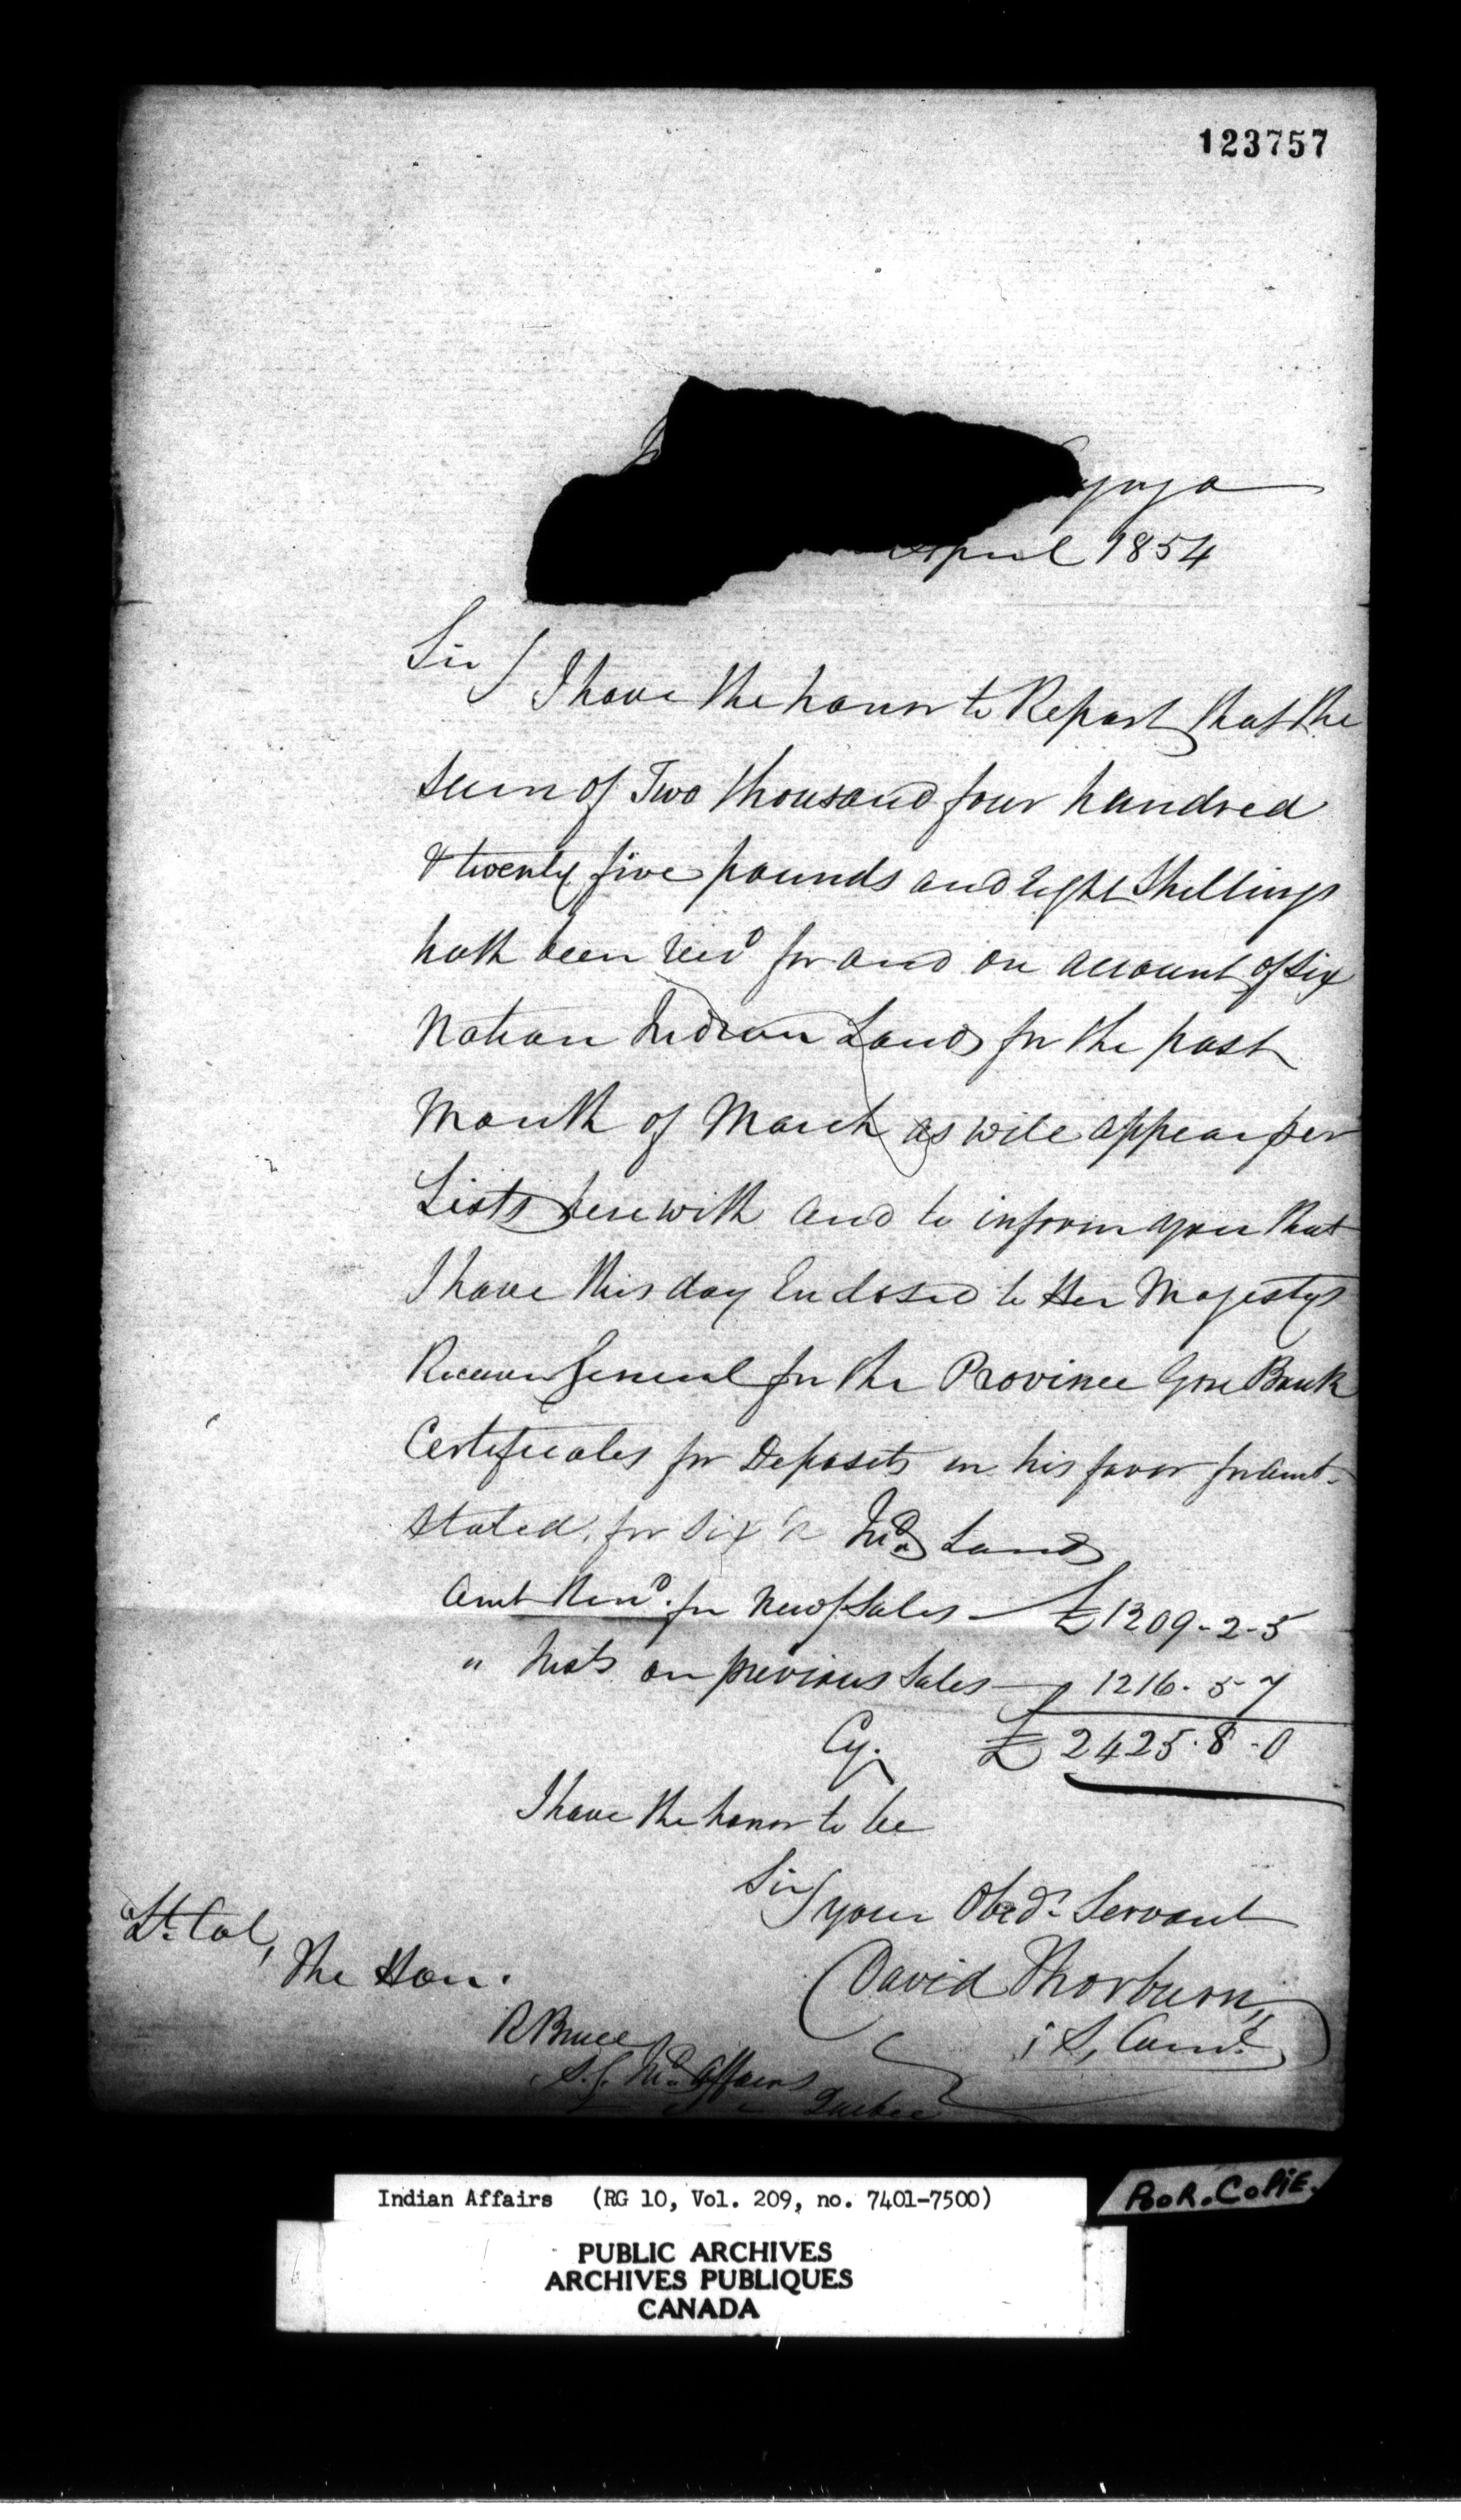 123757
April 1854
Sir
I have the honor to Report that the
sum of Two thousand four hundred
& twenty five pounds and eight Shillings
hath been Recd for and on account of Six
Nation Indian Lands for the past
Month of March as will appear per
Lists herewith and to inform you that
I have this day Enclosed to Her Majestys
Receiver General for the Province Gore Bank
Certificates for Deposits in his favor for amt.
stated, for Six N Ind. Lands
Amt Recd. for New Sales — £1209-2-5
" Insts on previous Sales — 1216-5-7
Cy. £2425-8-0
I have the honor to be
Sir
your Obedt. Servant
David Thorburn,
Lt. Col,
The Hon.
R Bruce
S. G. Ind. Affairs
Quebec
Indian Affairs (RG 10, Vol. 209, no. 7401-7500)
PooR. CoPiE.
PUBLIC ARCHIVES
ARCHIVES PUBLIQUES
CANADA